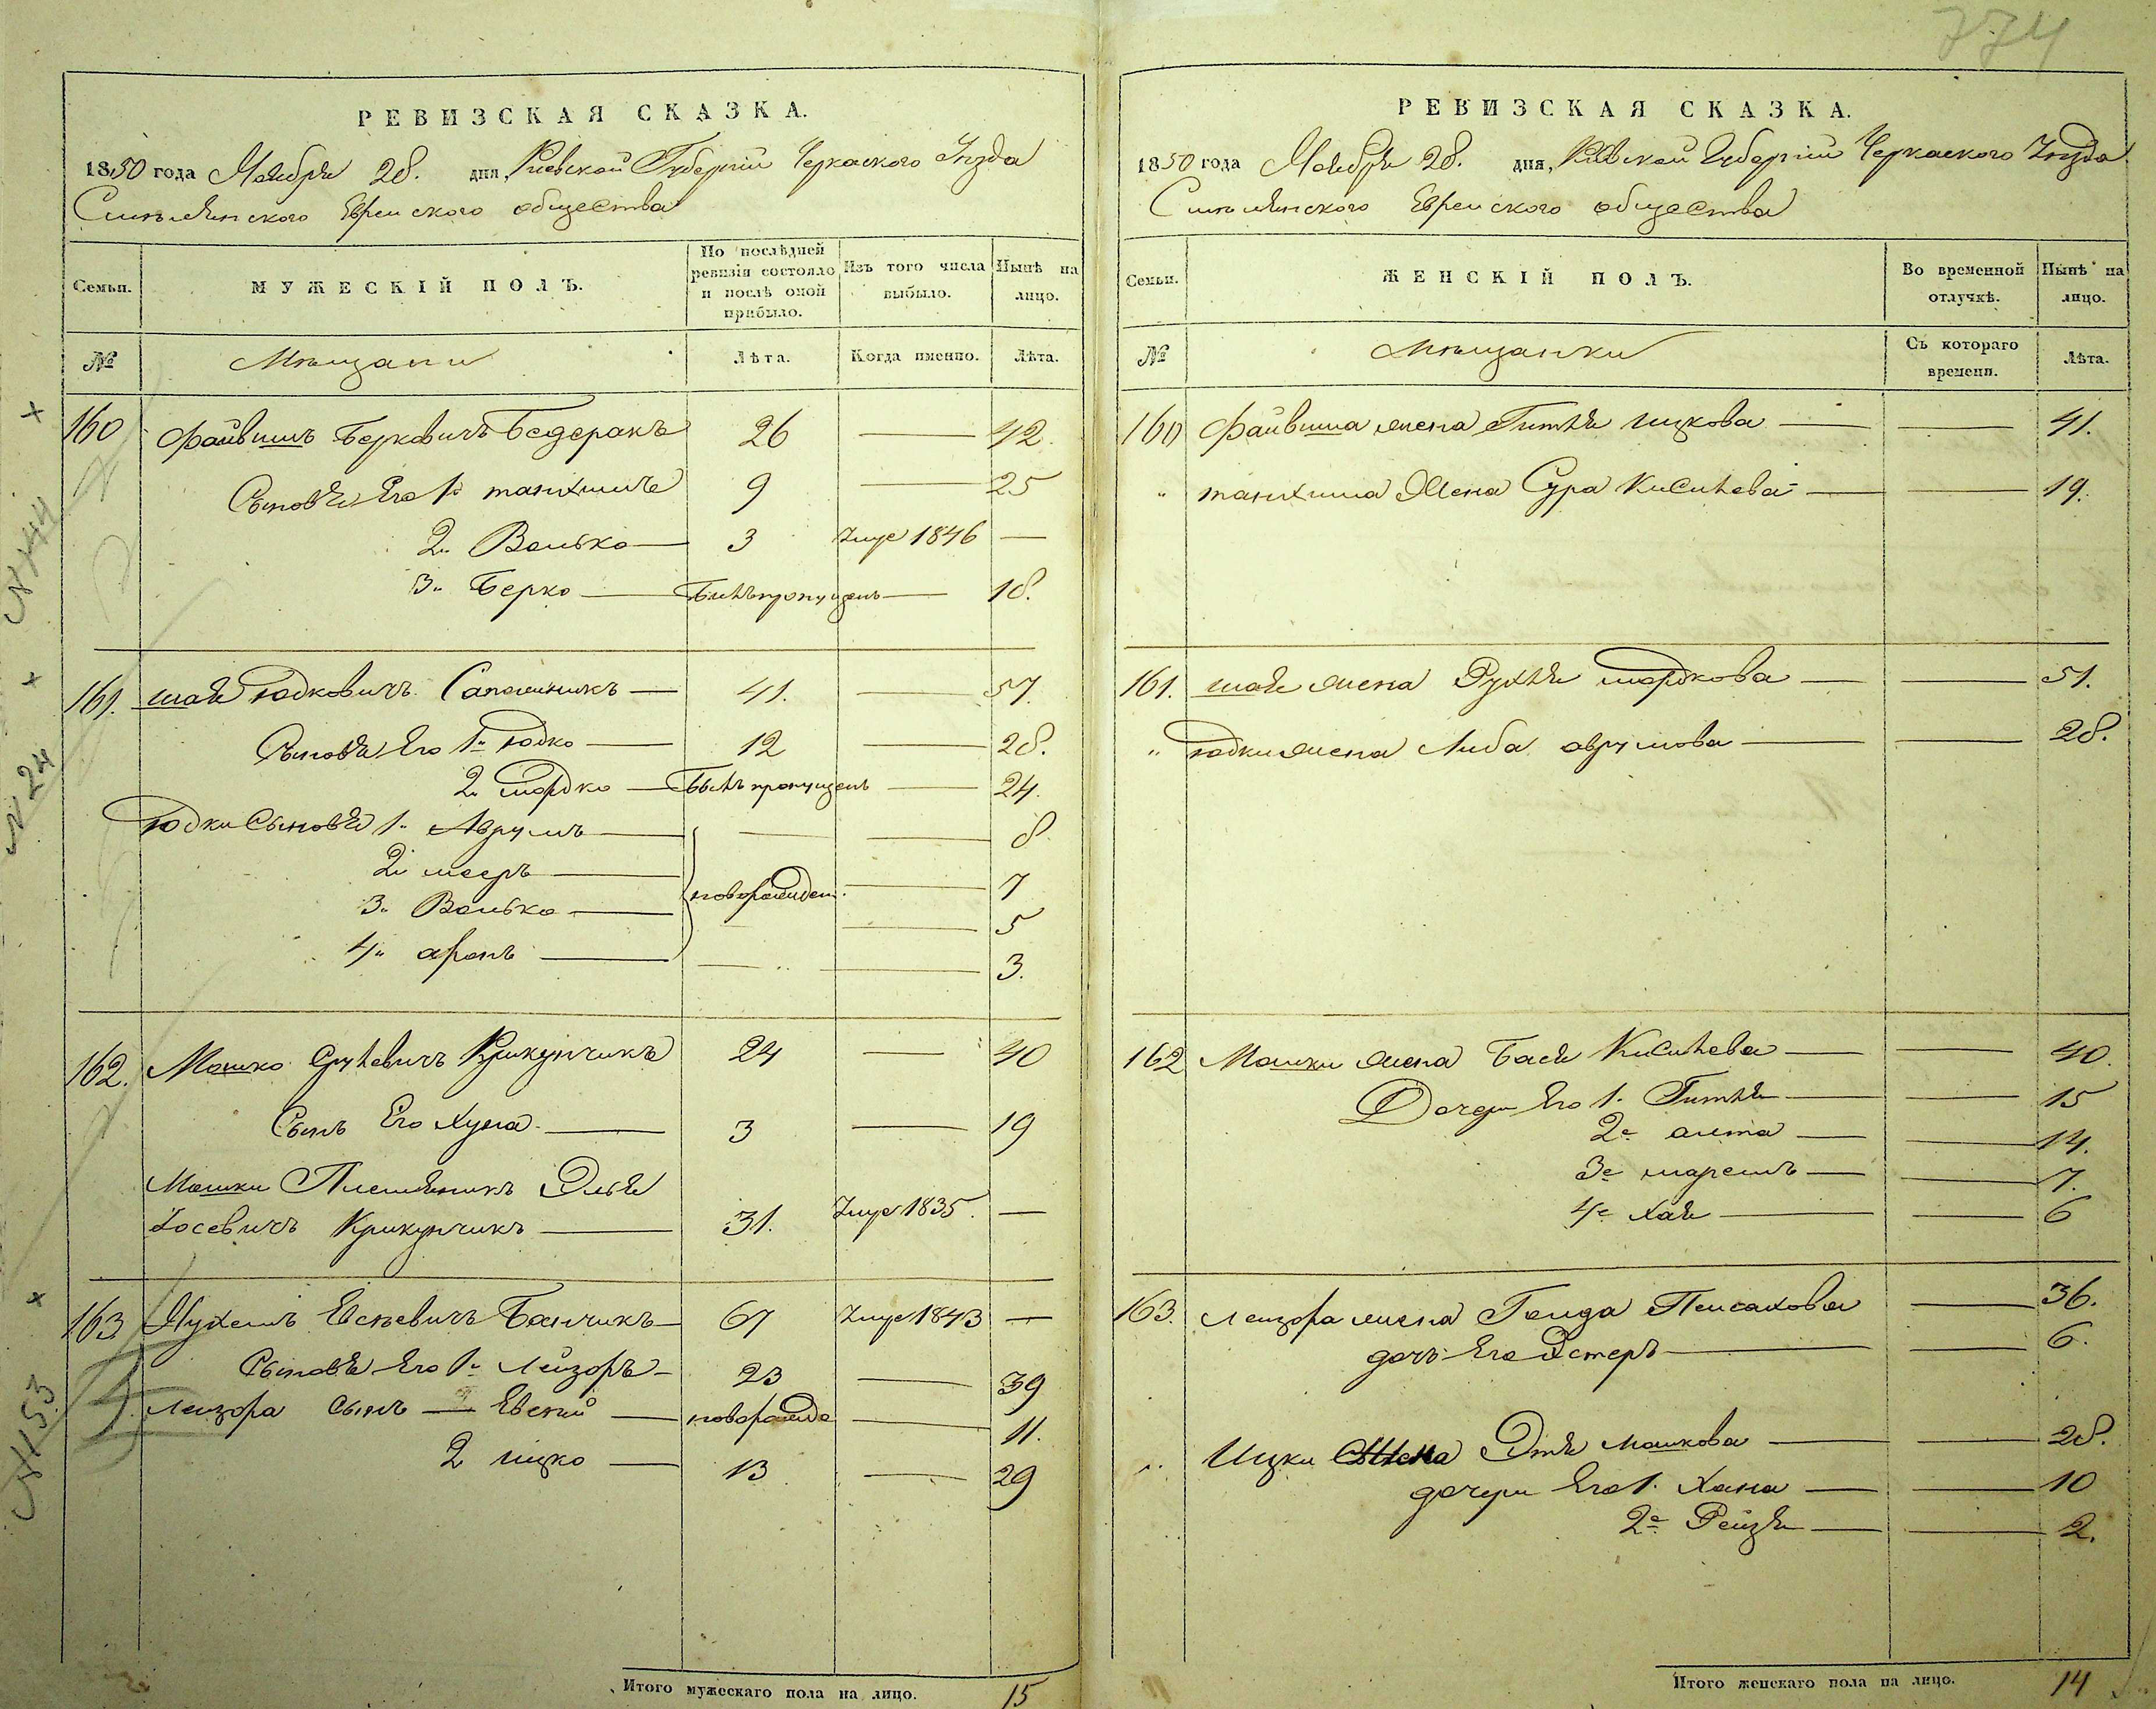 774
РЕВИЗСКАЯ СКАЗКА.
1850 года Ноября 28. дня, Киевской Губерніи Черкаского Уѣзда
Смѣлянского Еврейского общества
Семьи.
МУЖЕСКІЙ ПОЛЪ.
По послѣдней ревизіи состояло и послѣ оной прибыло.
Изъ того числа выбыло.
Нынѣ на лицо.
№
Мѣщани
Лѣта.
Когда именно.
Лѣта.
160 Файвишъ Берковичъ Бедеракъ 26 — 42.
Сыновья Его 1й танхимъ 9 — 25
2й Волько — 3 Умре 1846 —
3й Берко — Былъ пропущенъ — 18.
161. шая Юдковичъ Сапошникъ — 41. — 57.
Сыновья Его 1й Юдко — 12 — 28.
2й мордко — Былъ пропущенъ — 24.
Юдки Сыновья 1й Аврумъ — — — 8
2й мееръ — — 7
3й Волько — новорожден. — 5
4й аронъ — — — 3.
162. Мошко Срулевичъ Крикунчикъ 24 — 40
Сынъ Его Хуна — 3 — 19
Мошки Племянникъ Элья
Іосевичъ Крикунчикъ — 31. Умре 1835. —
163 Нухемъ Евсѣевичъ Банчикъ — 67 Умре 1843 —
Сыновья Его 1й Лейзоръ — 23 — 39
Лейзора сынъ — Евсѣй — новорожде — 11.
2 ицко — 13 — 29
Итого мужескаго пола на лицо. 15
РЕВИЗСКАЯ СКАЗКА.
1850 года Ноября 28. дня, Киевской Губерніи Черкаского Уѣзда
Смѣлянского Еврейского общества
Семьи.
ЖЕНСКІЙ ПОЛЪ.
Во временной отлучкѣ.
Нынѣ на лицо.
№
Мѣщанки
Съ котораго времени.
Лѣта.
160 Файвиша жена Гитля ицкова — — 41.
" танхима Жена Сура Кисилева — — 19.
161. шаи жена Рухля мордкова — — 51.
" Юдки жена Либа аврумова — — 28.
162 Мошки жена Бася Кисилева — — 40.
Дочери Его 1. Гитля — — 15
2е  — — 14.
3е маремъ — — 7.
4е Хая — — 6
163. Лейзора жена Голда Пейсахова — 36.
дочь Его Эстеръ — — 6.
" Ицки Жена Этя мошкова — — 28.
дочери Его 1. Хана — — 10
2е Рейзя — — 2.
Итого женскаго пола на лицо. 14
№ 144
№ 24
№ 153